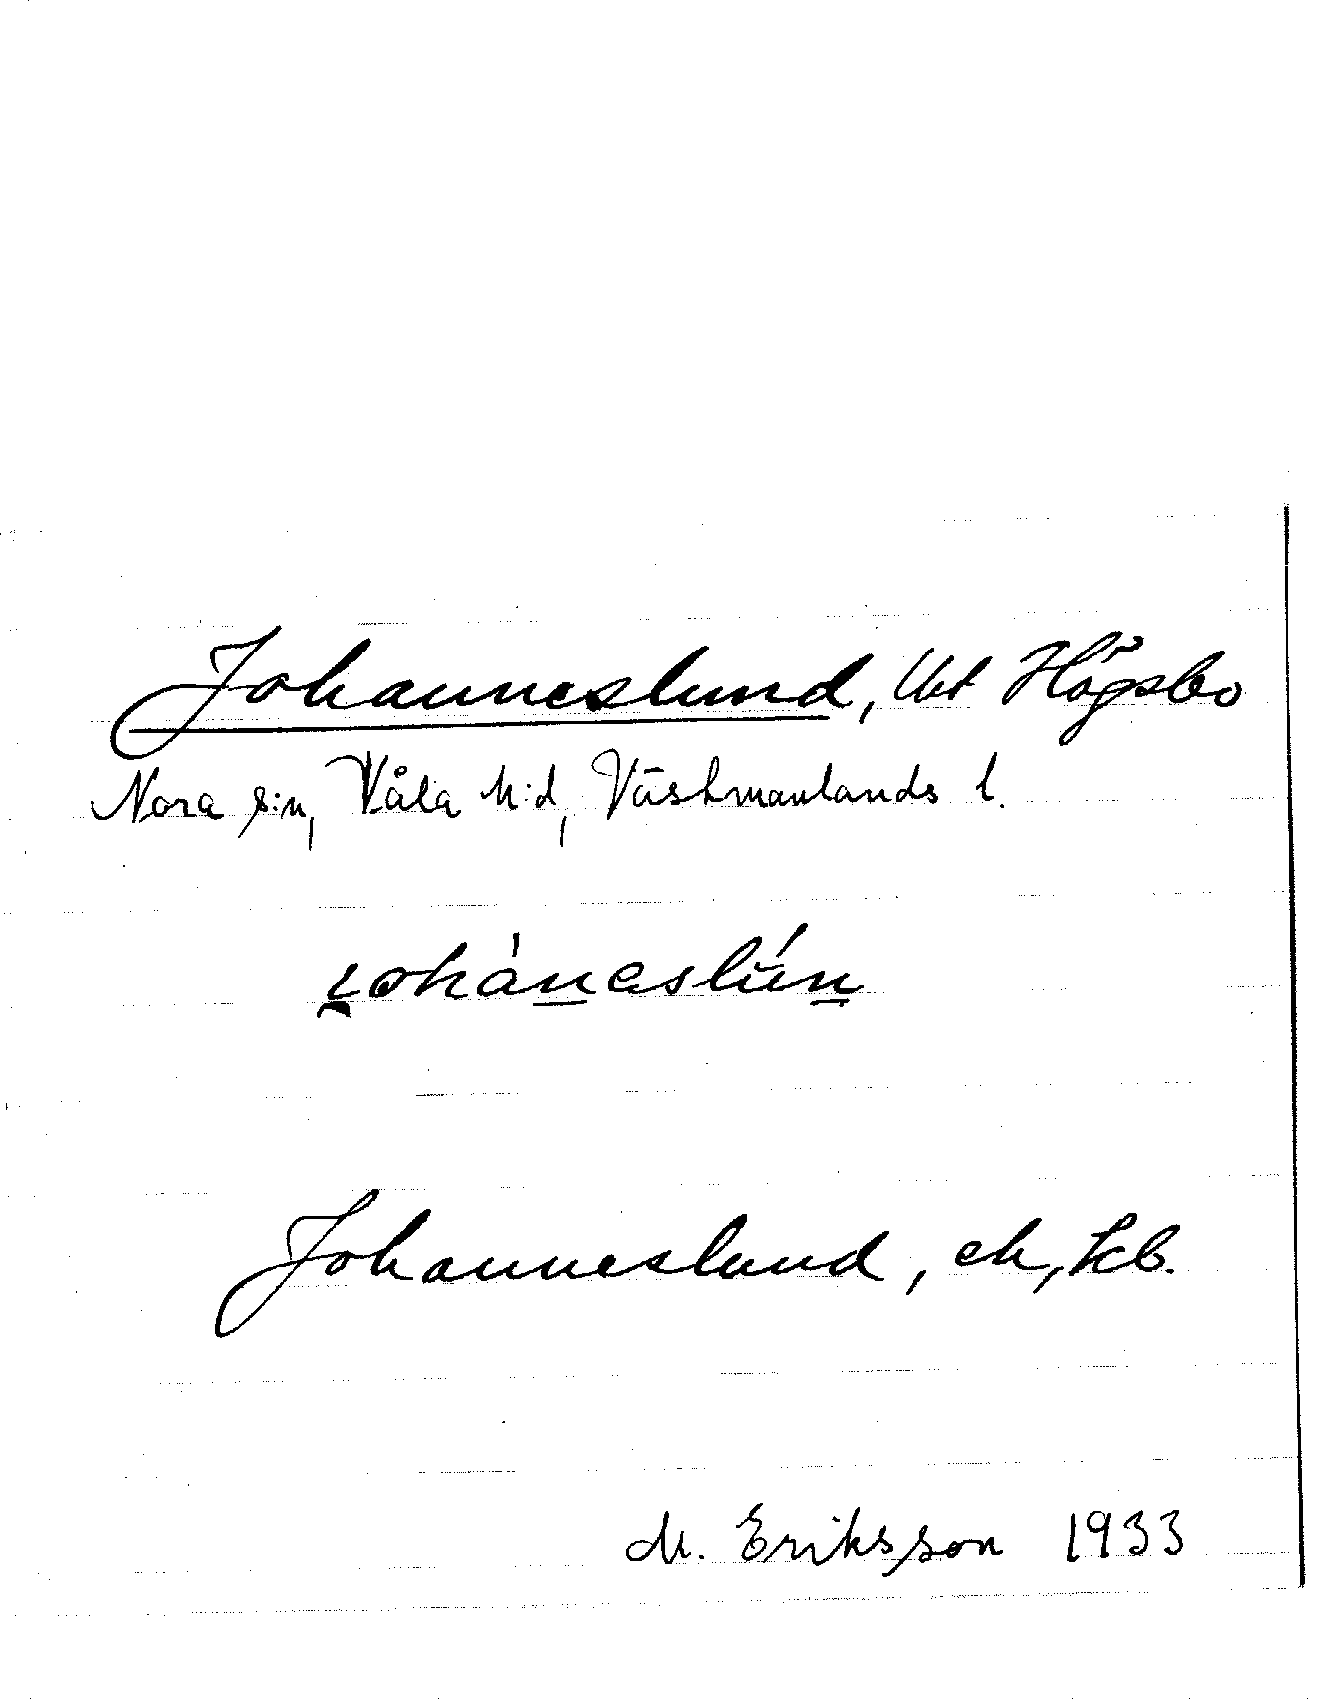 Johanneslund, Ukt Högsbo
Nora s:n, Våla h:d, Västmanlands l.
Johanneslund, ek, kb.
M. Eriksson 1933